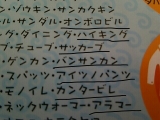 ン・ゾウキン・サンカクキン
ル・サンダル・オンボロビル
グ・ダイニング・ハイキング
プ・チューブ・サッカーブ
・ゲンカン・バンサンカン
・スパッツ・アイツノパンツ
・モノイレ・カンタービレ
・ネックウオーマー・アラマー